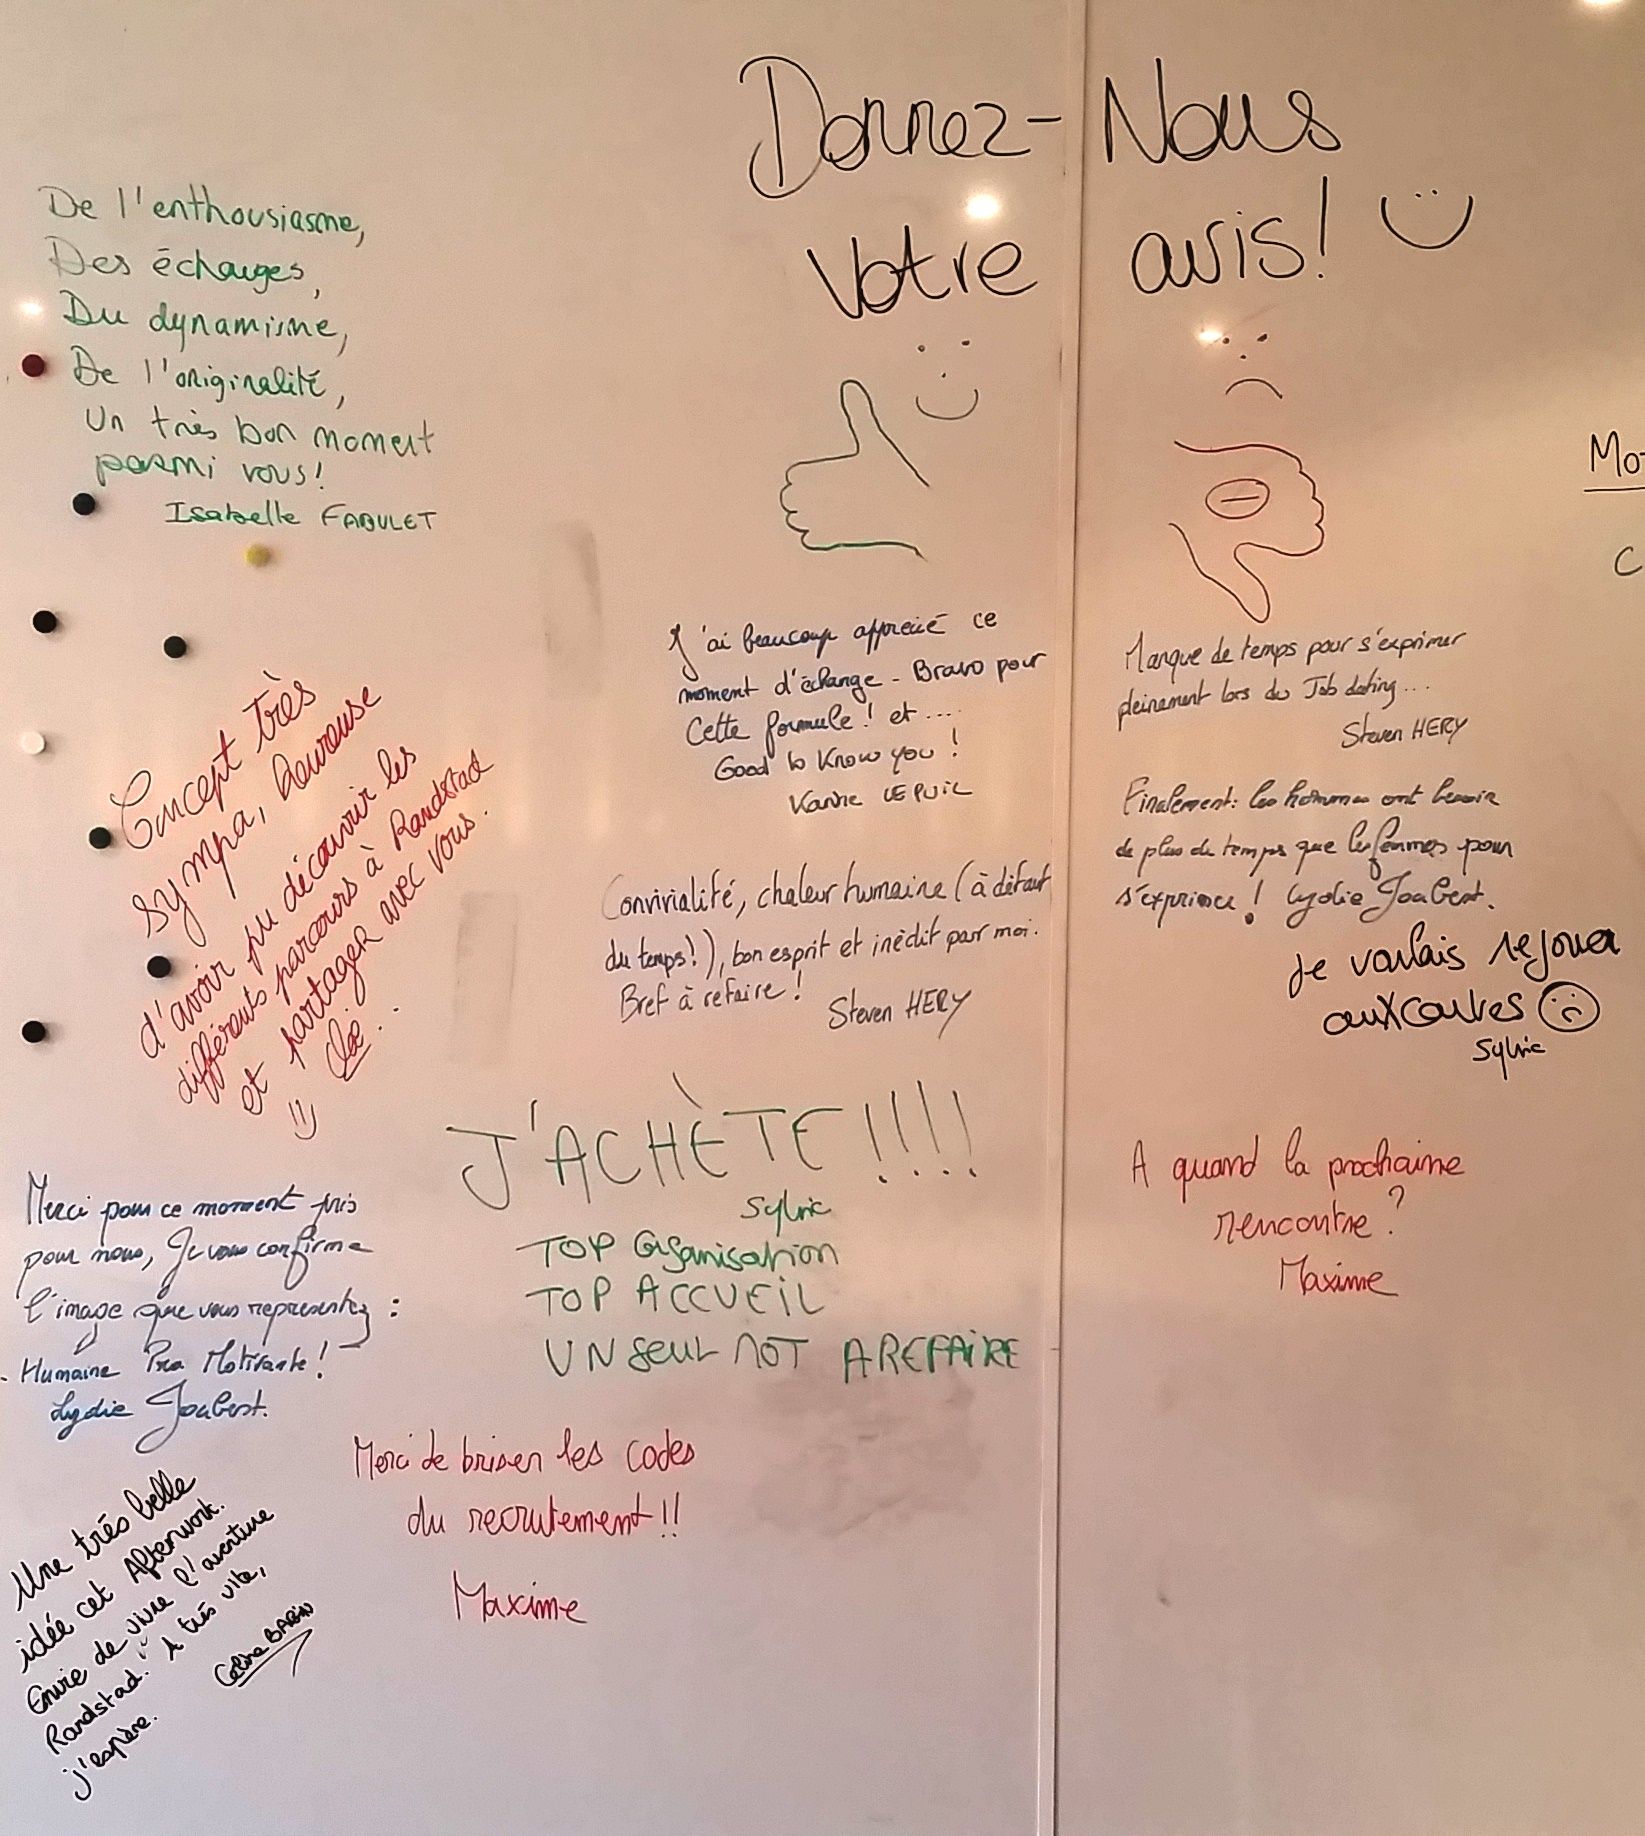 Donnez-Nous
votre avis!
De l'enthousiasme,
Des échanges,
Du dynamisme,
De l'originalité,
Un très bon moment
parmi vous!
Isabelle FABULET
Concept très
sympa, heureuse
d'avoir pu découvrir les
différents parcours à Randstad
et partager avec vous.
Merci pour ce moment pris
pour nous, Je vous confirme
l'image que vous représentez :
Humaine Pro Motivante!
Lydie Joubert.
Une très belle
idée cet Afterwork.
Envie de vivre l'aventure
Randstad. A très vite,
j'espère.
Celine BABIN
J'ai beaucoup apprecié ce
moment d'échange - Bravo pour
Cette formule! et ....
Good to Know you!
Karine LEPUIL
Convivialité, chaleur humaine (à défaut
du temps!), bon esprit et inédit par moi.
Bref à refaire!
Steven HERY
J'ACHÈTE!!!!
Sylvie
TOP Organisation
TOP ACCUEIL
UN SEUL MOT A REFAIRE
Merci de briser les codes
du recrutement!!
Maxime
Manque de temps pour s'exprimer
pleinement lors du Job dating...
Steven HERY
Finalement: les hommes ont besoin
de plus de temps que les femmes pour
s'exprimer! Lydie Joubert.
Je voulais rejouer
aux cartes
Sylvie
A quand la prochaine
rencontre?
Maxime
Mo
C